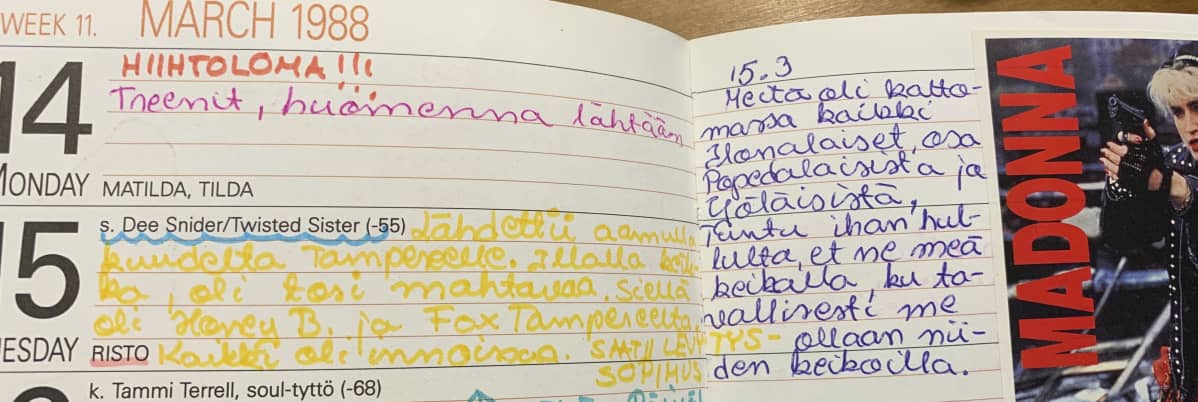 WEEK 11. MARCH 1988
14
HIIHTOLOMA!!!
Treenit, huomenna lähtään
MONDAY MATILDA, TILDA
15
s. Dee Snider/Twisted Sister (-55) Lähdettii aamulla
kuudelta Tampereelle. Illalla keik-
ka, oli tosi mahtavaa. Siellä
oli Honey B. ja Fox Tampereelta
TUESDAY RISTO Kaikki oli innoissaa. SAATII LEVYTYS-
SOPIMUS
k. Tammi Terrell, soul-tyttö (-68)
15.3
Meitä oli katto-
massa kaikki
Yölaisistä,
Popedalaisista ja
Tuntu ihan hul-
lulta, et ne meiä
keikalla, ku ta-
vallisesti me
ollaan nii-
den keikoilla.
MADONNA